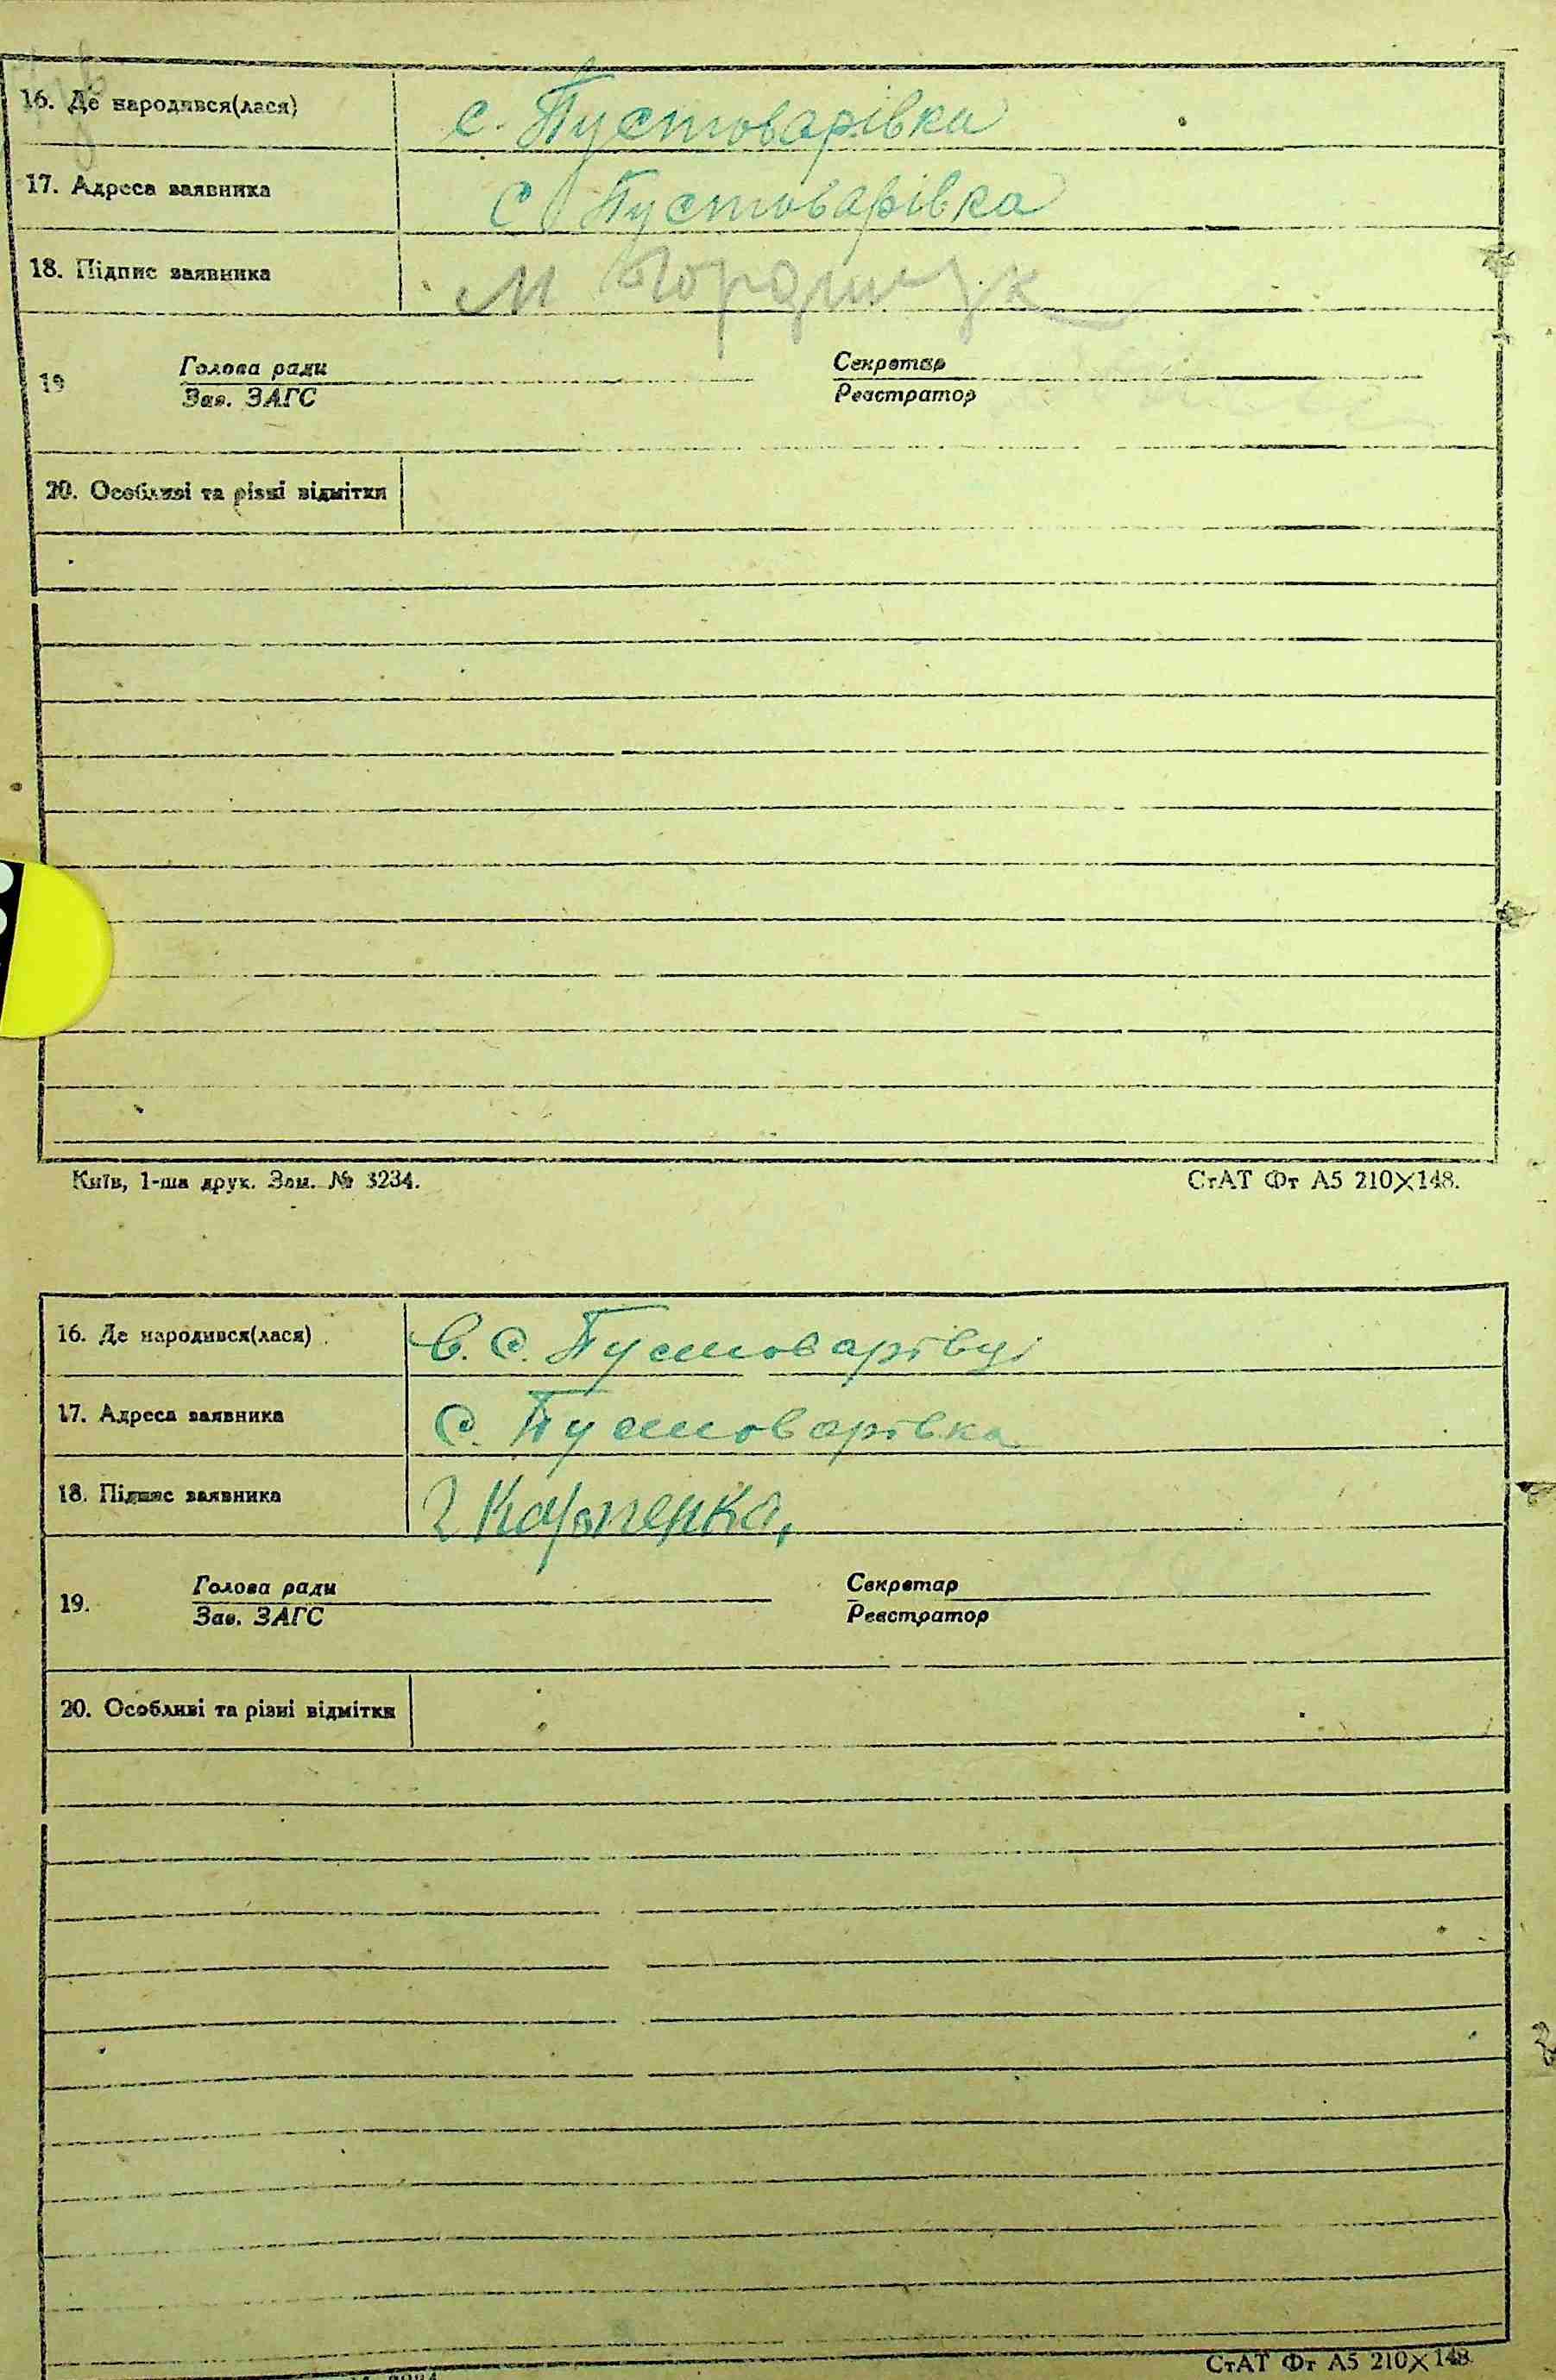 16. Де народився(лася) с. Пустоварівка
17. Адреса заявника с. Пустоварівка
18. Підпис заявника М
19 Голова ради Секретар
Зав. ЗАГС Реєстратор
20. Особливі та різні відмітки
Київ, 1-ша друк. Зам. № 3234. СтАТ Фт А5 210×148.
16. Де народився(лася) в. с. Пустоварівці
17. Адреса заявника с. Пустоварівка
18. Підпис заявника Карпенко
19. Голова ради Секретар
Зав. ЗАГС Реєстратор
20. Особливі та різні відмітки
СтАТ Фт А5 210×148